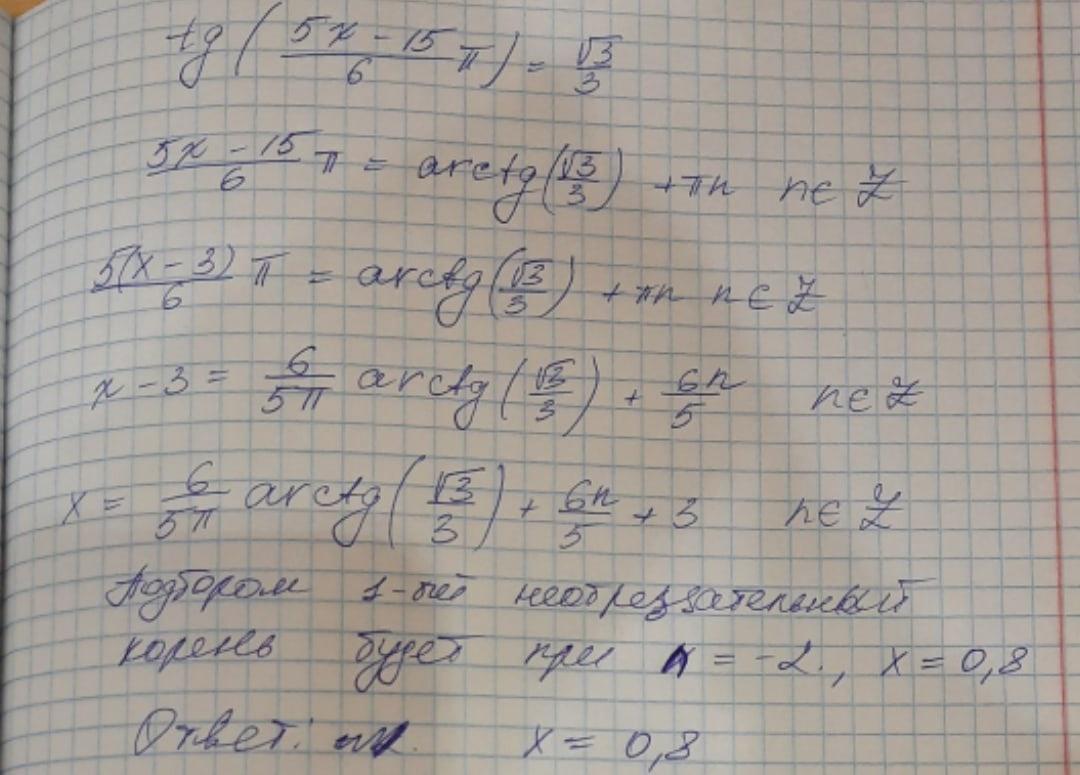 tg ( (5x - 15)/6 π ) = √3/3
(5x - 15)/6 π = arctg(√3/3) + πn n ∈ Z
5(x - 3)/6 π = arctg(√3/3) + πn n ∈ Z
x - 3 = 6/5π arctg(√3/3) + 6n/5 n ∈ Z
x = 6/5π arctg(√3/3) + 6n/5 + 3 n ∈ Z
Подбором 1-ый необрезательный
корень будет при n = -2., x = 0,8
Ответ: x = 0,8